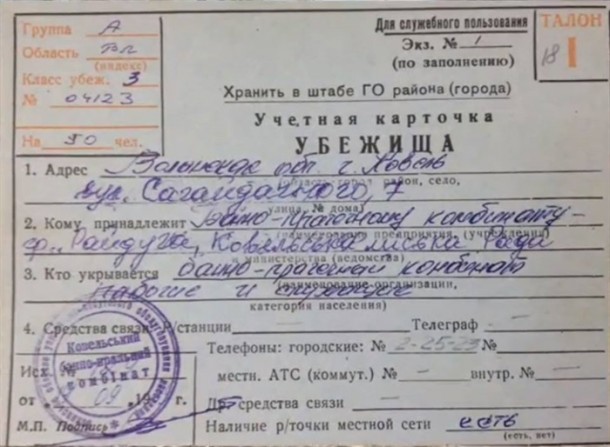 Для служебного пользования
Экз. № 1
(по заполнению)
ТАЛОН
18 1
Группа А
Область Вл
(индекс)
Класс убеж. 3
№ 04123
На 50 чел.
Хранить в штабе ГО района (города)
Учетная карточка
УБЕЖИЩА
1. Адрес Волинська обл. г. Ковель
область, город, район, село,
вул. Сагайдачного, 7
улица, № дома)
2. Кому принадлежит Банно-прачечному комбінату-
(наименование предприятия, (учреждения)
ф. "Райдуга", Ковельська міська Рада
и министерства (ведомства)
3. Кто укрывается банно-прачечный комбінат
(наименование организации,
рабочие и служащие
категория населения)
4. Средства связи: Р/станции — Телеграф —
Телефоны: городские: № 2-25-23 № —
Исх. № местн. АТС (коммут.) № — внутр. № —
от 09 19 г. Др. средства связи —
М.П. Подпись Наличие р/точки местной сети есть
(есть, нет)
Ковельський
банно-пральний
комбінат